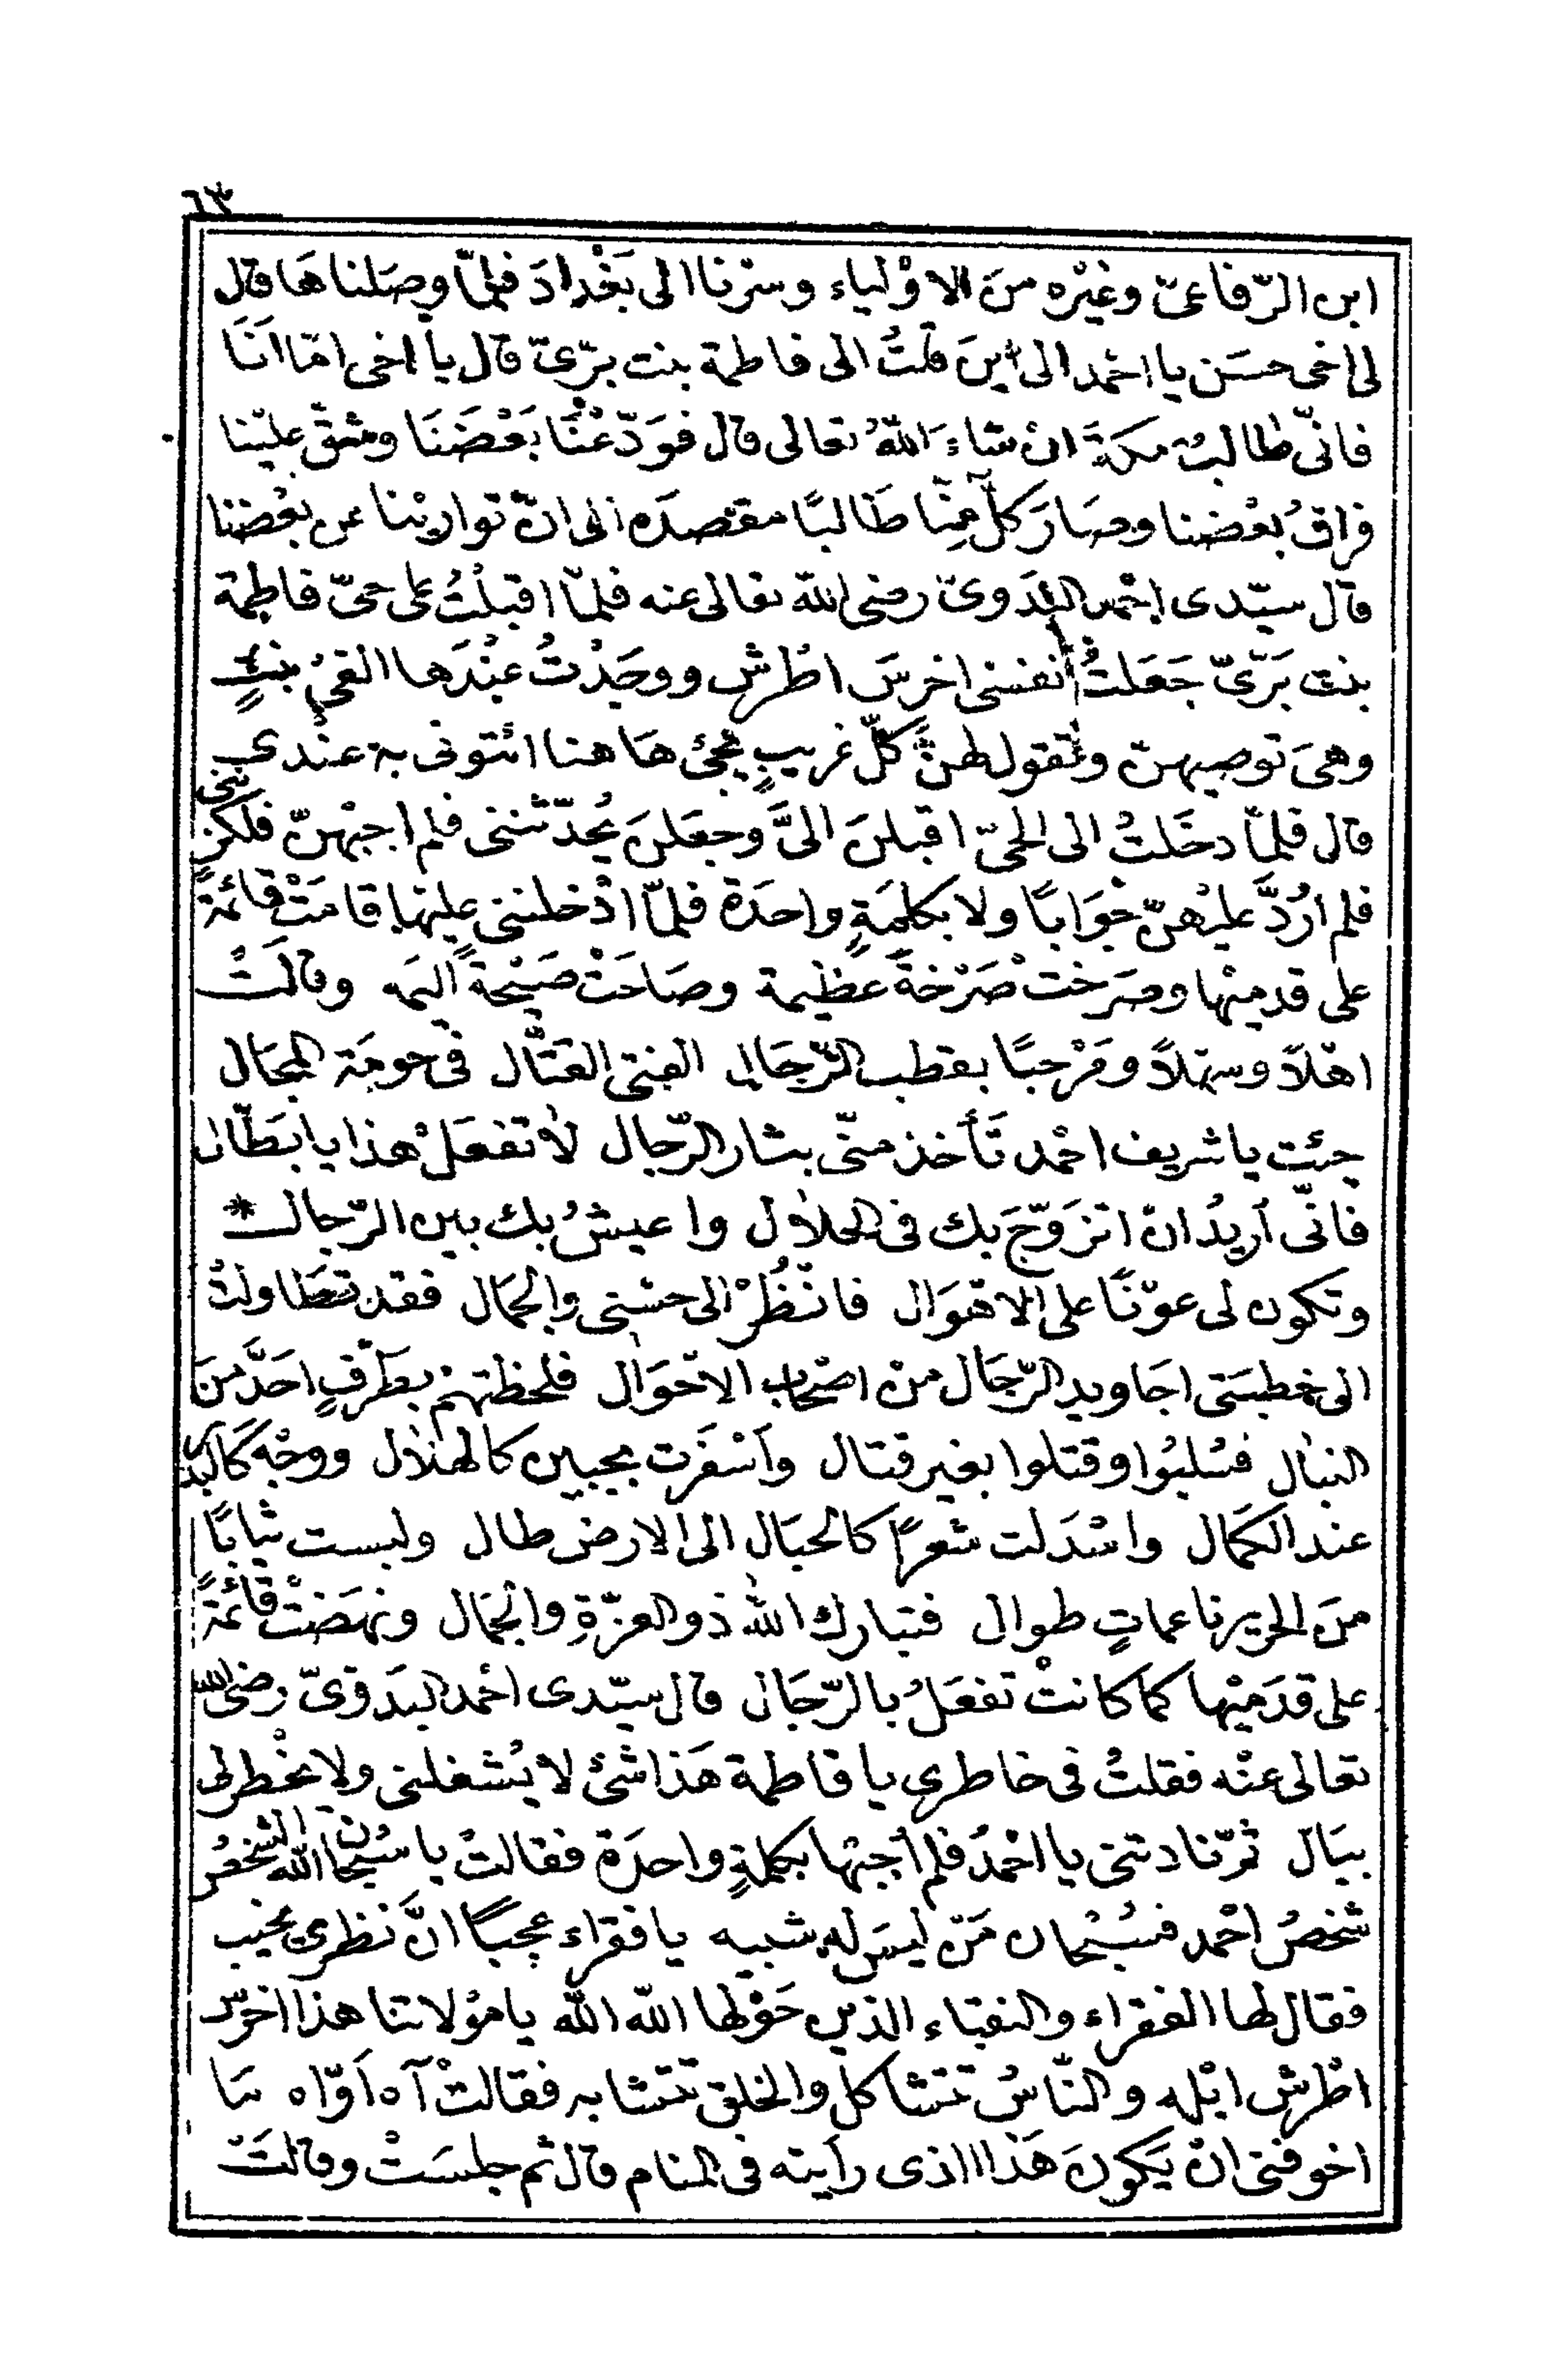 ٦٣
ابن الرّفاعىّ وغيْره منَ الاوْلياء وسرْنا الى بَغْدادَ فلمّا وصَلنا هَا قال
لى اخى حسَن يا احْمد الى اينَ قلتُ الى فاطمة بنت برّىّ قال يا اخى امّا انَا
فانّى طالبٌ مكةَ انْ شاءَ اللهُ تعالى قال فوَدّعْنَا بَعْضَنَا وشقّ عليْنا
فراقُ بعْضنا وصَارَ كلٌّ منّا طَالبًا مقصدَه الى انْ توارينا عن بعْضنا
قال سيّدى احْمد البدَوىّ رضى الله تعالى عنه فلمّا اقبلْتُ على حىّ فاطمة
بنت بَرّىّ جَعَلتُ نفسى اخرسَ اطْرش ووجَدْتُ عنْدَها الفىْ بنتٍ
وهىَ توصيهنّ وتقول لهنَّ كلّ غريبٍ يجئ هَاهنا ائتونى به عنْدى
قال فلمّا دخَلتُ الى الحىّ اقبلنَ الىَّ وجعَلنَ يُحدّثننى فلم اجبْهنّ فلكزننى
فلم ارُدَّ عليْهنّ جوَابًا ولا بكلمَةٍ واحدَة فلمّا ادْخلننى عليْها قامَتْ قائمةً
على قدميْها وصرَختْ صَرْخةً عظيمة وصَاحَتْ صَيْحةً اليمَه وقالَتْ
اهْلاً وسهْلاً ومَرْحبًا بقطب الرّجَال الفتى القتَّال فى حومَة المجَال
جئت يا شريف احْمد تَأخذ منّى بثار الرّجال لا تفعَلْ هذا يا ابَطّال
فانّى اريدُ انْ اتزَوّجَ بك فى الحلال واعيشُ بك بين الرّجال *
وتكون لى عوْنًا على الاهْوَال فانْظُرْ الى حسْنى والجمَال فقد تطَاولتْ
الى خطبَتى اجَاويد الرّجَال منْ اصْحاب الاحْوَال فلحظتهمْ بطَرْفٍ احَدَّ منَ
النبال فسُلبُوا وقتلوا بغير قتال واَسْفَرت بجبين كالهلال ووجْه كَالبدر
عند الكمَال واسْدَلت شعرًا كالحبَال الى الارض طال ولبست ثيابًا
منَ الحرير ناعماتٍ طوال فتبارك الله ذو العزّةِ والجمَال ونهضَتْ قائمةً
على قدَميْها كما كانتْ تفعَلُ بالرّجَال قال سيّدى احْمد البدَوىّ رضى الله
تعالى عنْه فقلتُ فى خاطرى يا فاطمة هَذا شئ لا يُشغلنى ولا يخْطر لى
ببَال ثمّ نادتنى يا احْمدُ فلم اُجبْها بكلمةٍ واحدَة فقالتْ يا سُبْحان الله الشخصُ
شخصُ احْمد فسُبْحان مَنْ ليسَ له شبيه يا فقراء عجبًا انَّ نظرى يخيب
فقال لها الفقراء والنقباء الذين حَوْلها الله الله يا موْلاتنا هذا اخرَس
اطْرش ابْله والنّاسُ تتشاكل والخلق تتشابه فقالتْ آه اَوّاه مَا
اخوفنى انْ يَكونَ هَذا اذى رأيته فى المنام قال ثم جلسَتْ وقالَتْ